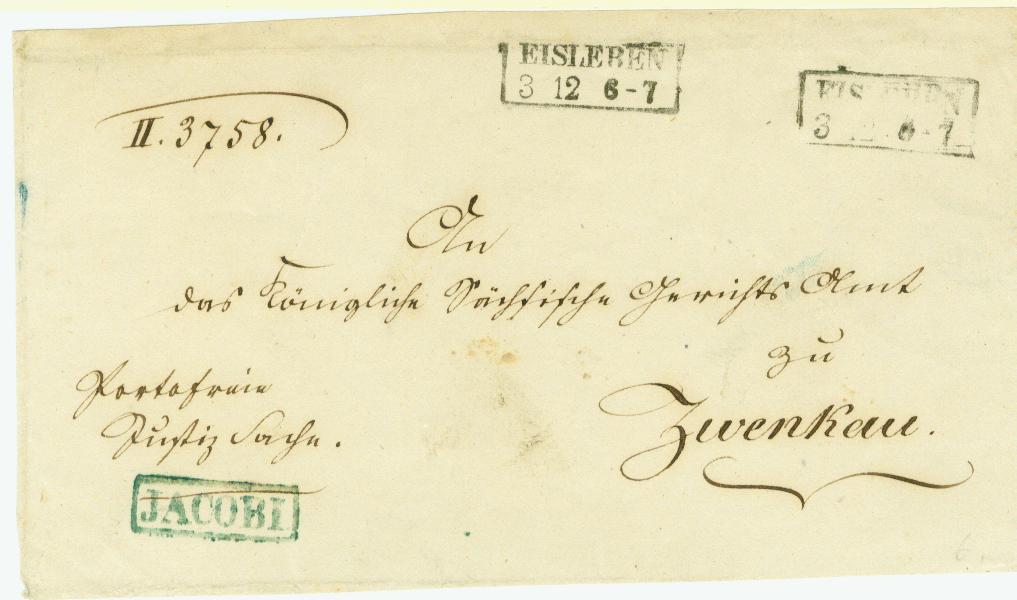 EISLEBEN
3 12 6-7
EISLEBEN
3 12 6-7
II. 3758.
An
das Königliche Sächsische Gerichts Amt
zu
Zwenkau.
Portofreie
Justiz Sache.
JACOBI